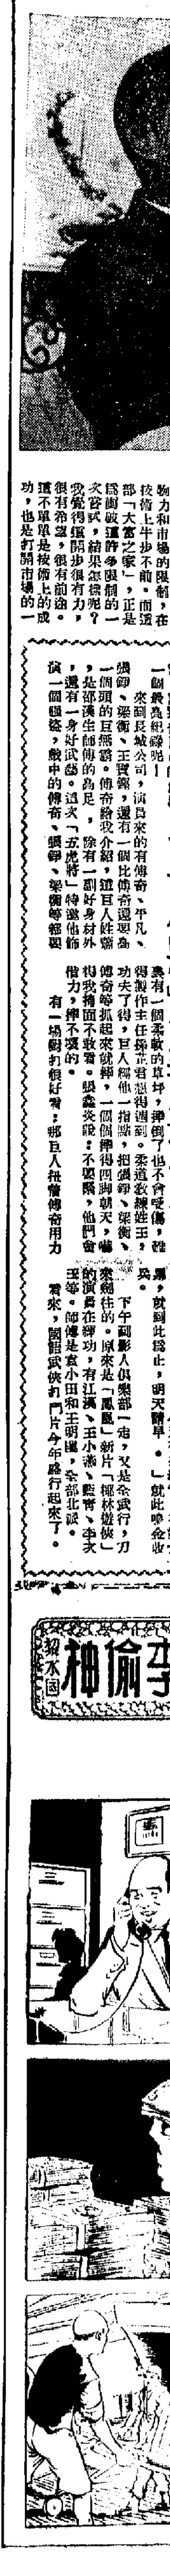 物力和市場的限制，在
技術上半步不前。而這
部「大富之家」，正是
爲衝破這許多限制的一
次嘗試，結果怎樣呢？
我覺得這開步很有力，
很有希望，很有前途。
這不單單是技術上的成
功，也是打開市場的一
一個最高紀錄呢！
來到長城公司，演員來的有傅奇、平凡、
張錚、梁衡、王寶鏗，還有一個比傅奇還要高
一個頭的巨無霸。傅奇給我介紹，這巨人姓
，是邵漢生師傅的高足，除有一副好身材外
，還有一身好武藝。這次「五虎將」特邀他飾
演一個强盜，戲中的傅奇、張錚、梁衡等都要
裏有一個柔軟的草坪，摔倒了也不會受傷，
得製作主任孫芷君想得週到。柔道教練姓王，
功夫了得，巨人經他一指點，把張錚、梁衡、
傅奇等抓起來就摔，一個個摔得四脚朝天，嚇
得我掩面不敢看。張鑫炎說：不要緊，他們會
借力，摔不壞的。
有一場對打很好看：那巨人扭着傅奇用力
，就到此爲止，明天請早。」就此鳴金收
兵。
下午到影人俱樂部一走，又是全武行，刀
來劍往的。原來是「鳳凰」新片「椰林遊俠」
的演員在練功，有江漢、王小燕、藍青、李次
玉等。師傅是袁小田和王明園，全部北派。
看來，國語武俠打鬥片今年將行起來了。
李偷神